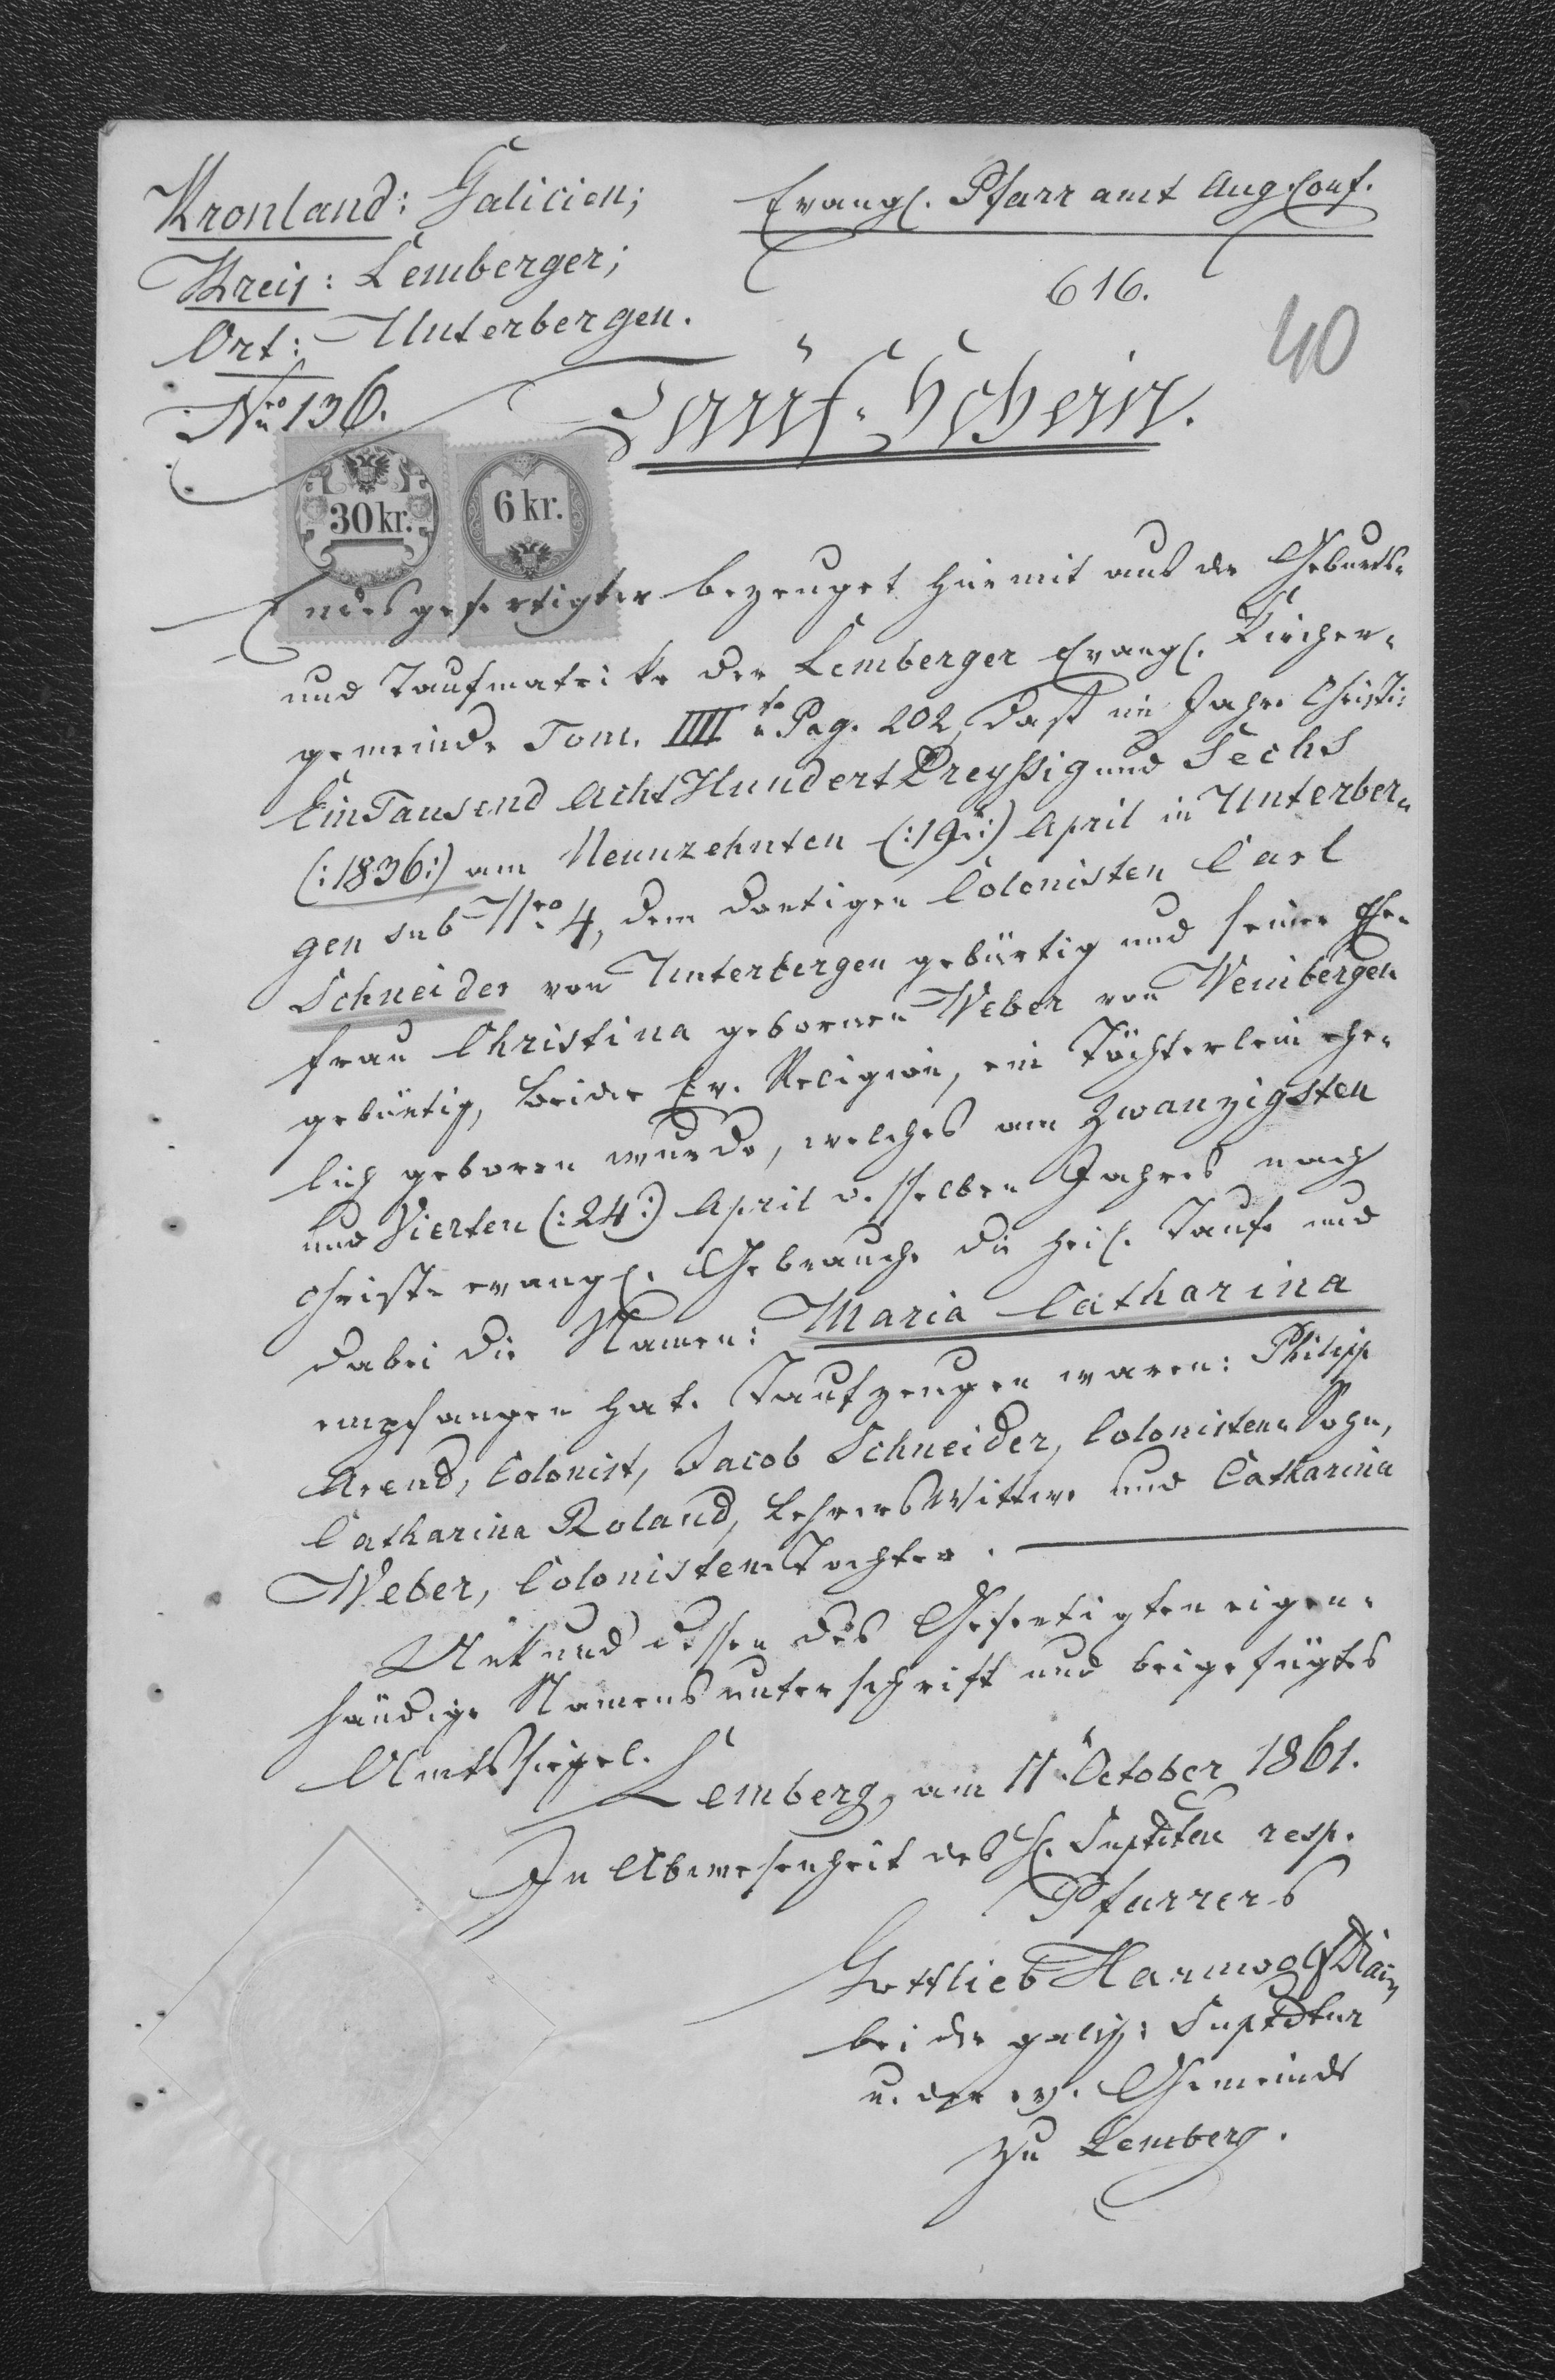 Kronland: Galicien;
Evangl. Pfarramt Aug. Conf.
Kreis: Lemberger;
616.
Ort: Unterbergen.
40
Nro 136.
Tauf-Schein.
30 kr.
6 kr.
Endesgefertigter bezeuget hiermit aus der Geburts-
und Taufmatrike der Lemberger Evangl. Kirchen-
gemeinde Tom. IIII to Pag. 202, daß im Jahre Christi:
Ein Tausend Acht Hundert Dreyssig und Sechs
(:1836:) am Neunzehnten (:19t:) April in Unterber-
gen sub Nro 4, dem dortigen Colonisten Carl
Schneider von Unterbergen gebürtig und seiner Ehe-
frau Christina gebornen Weber von Weinbergen
gebürtig, beide Ev. Religion, ein Töchterlein ehe-
lich geboren wurde, welches am Zwanzigsten
und Vierten (:24:) April desselben Jahres nach
christ- evangl. Gebrauche die heil. Taufe und
dabei die Namen: Maria Catharina
empfangen hat. Taufzeugen waren: Philipp
Arend, Colonist, Jacob Schneider, Colonisten-Sohn,
Catharina Roland, LehrersWittwe und Catharina
Weber, Colonisten-Tochter.
Urkund dessen des Gefertigten eigen-
händige Namensunterschrift und beigefügtes
Amtssiegel.
Lemberg, am 11. October 1861.
In Abwesenheit des H. Suptdten resp.
Pfarrers
Gottlieb
bei der galiz: Suptdtur
u. der ev. Gemeinde
zu Lemberg.